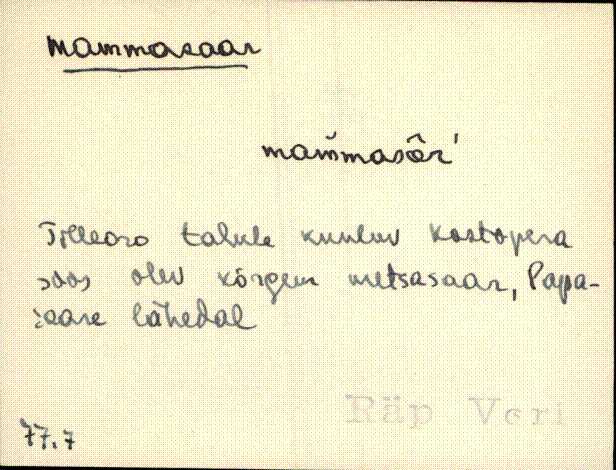 Mammasaar
mam̆masôr'
Tilleoro talule kuuluv Kostopera
soos olev kõrgem metsasaar, Papa-
saare lähedal
Räp Veri
77.7